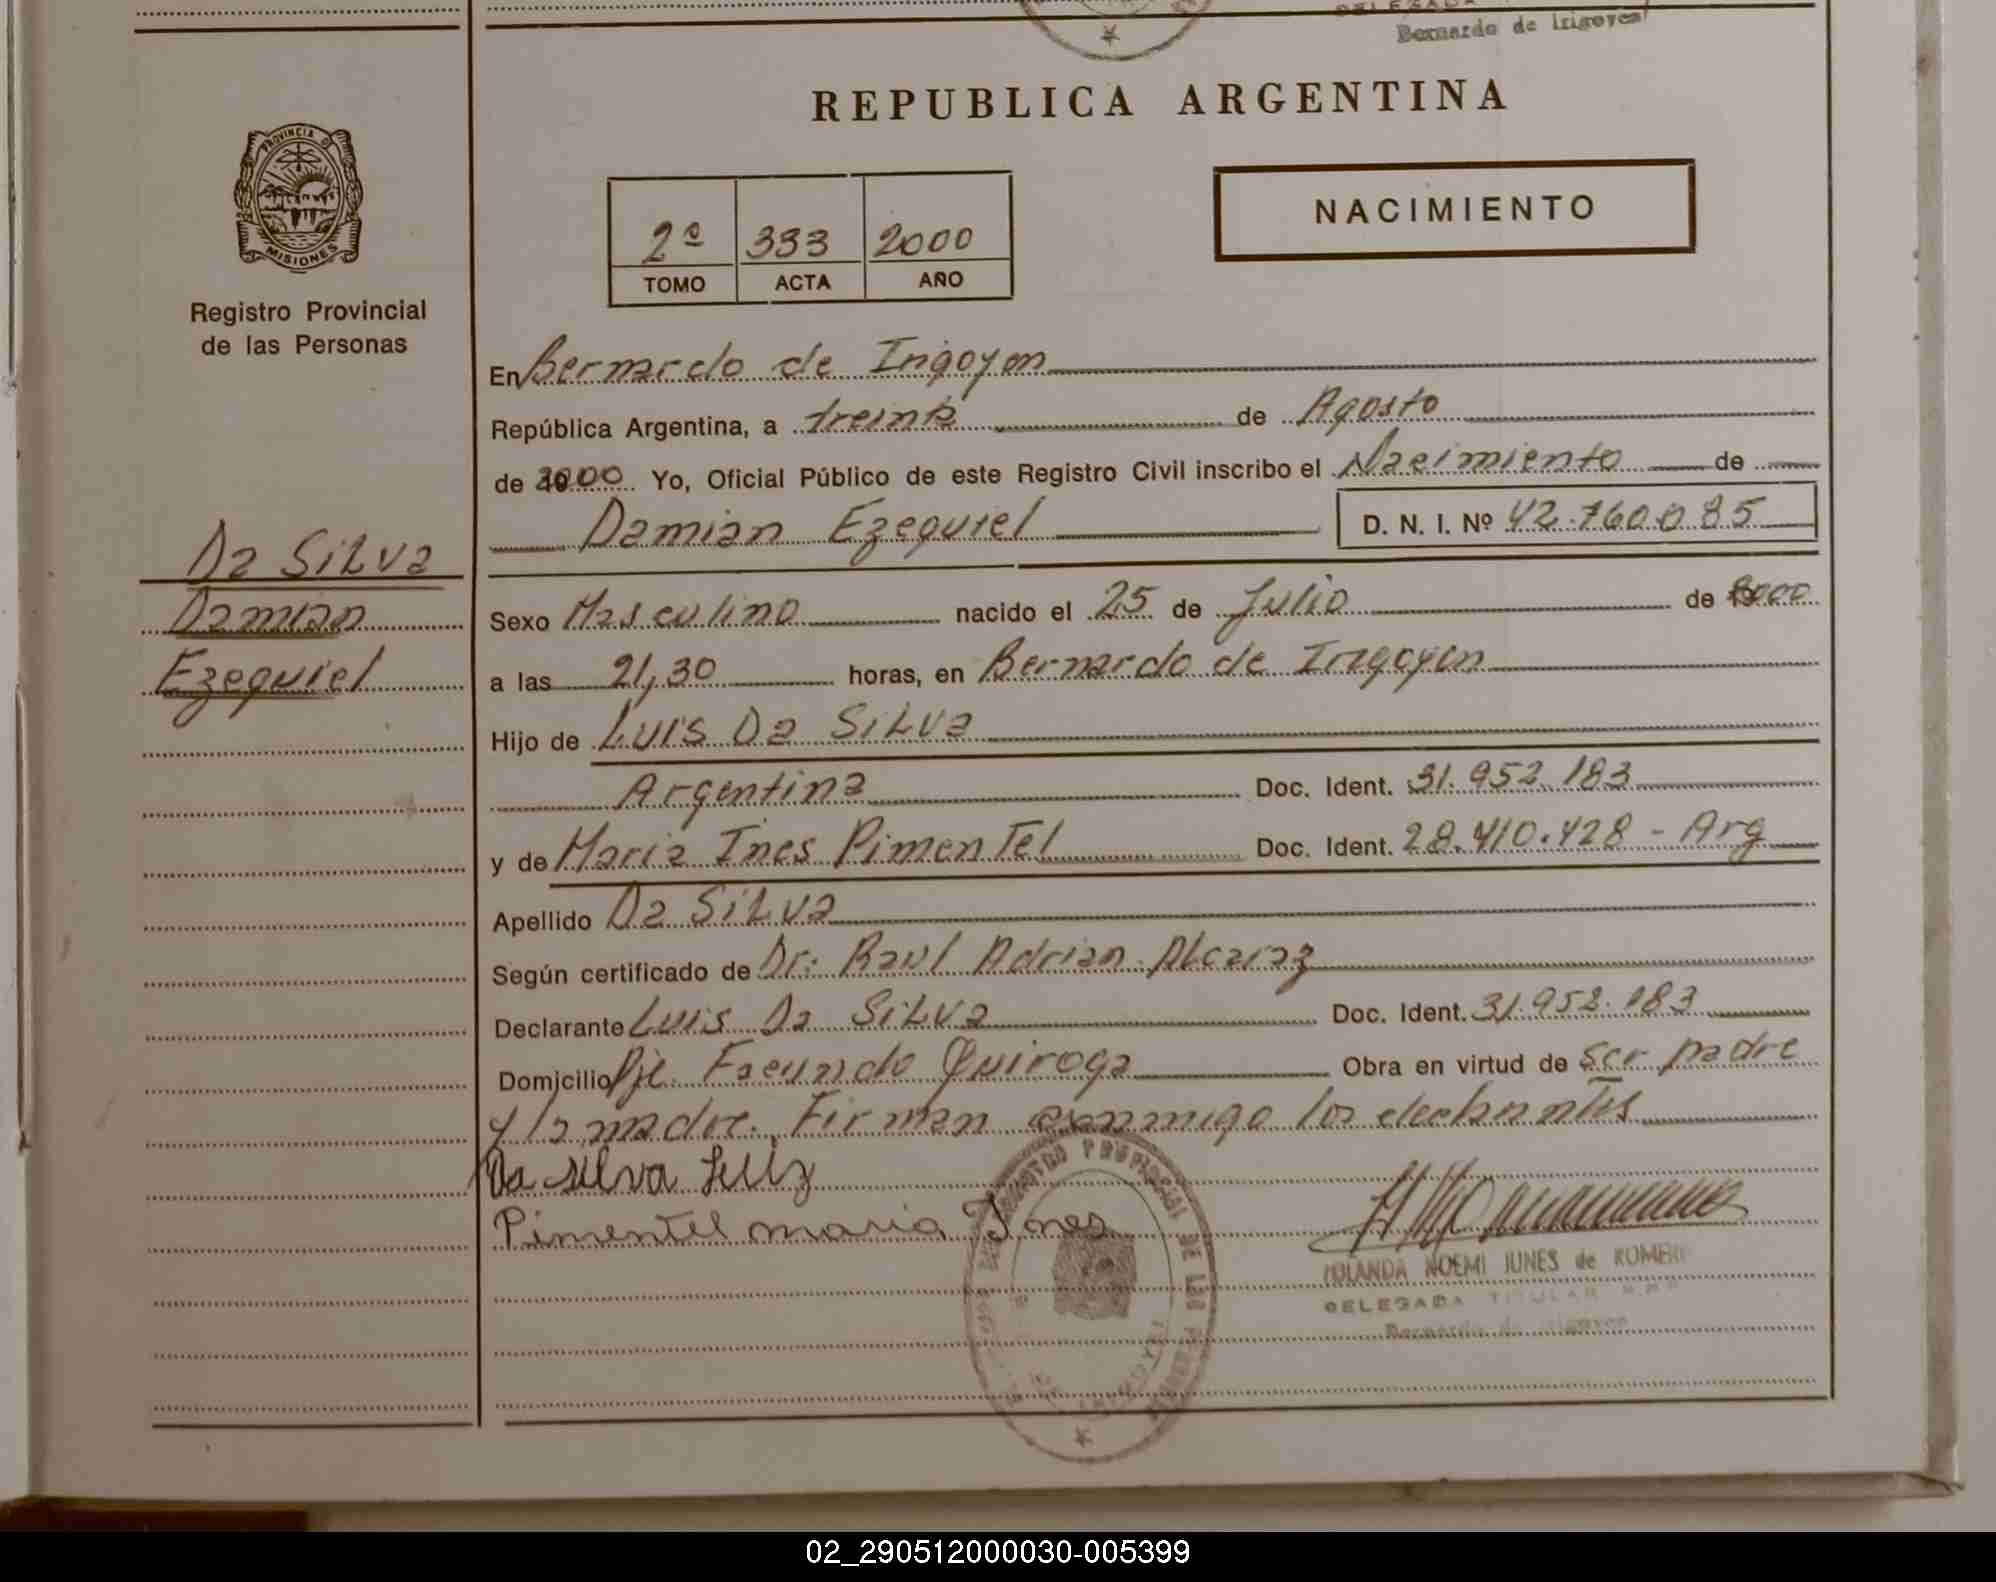 DELEGADA
Bernardo de Irigoyen
REPUBLICA ARGENTINA
PROVINCIA DE
MISIONES
Registro Provincial
de las Personas
2º 333 2000
TOMO ACTA AÑO
NACIMIENTO
En Bernardo de Irigoyen
República Argentina, a treinta de Agosto
de 2000 Yo, Oficial Público de este Registro Civil inscribo el Nacimiento de
Damian Ezequiel D. N. I. Nº 42.760.085
Da Silva
Damian
Ezequiel
Sexo Masculino nacido el 25 de Julio de 2000
a las 21,30 horas, en Bernardo de Irigoyen
Hijo de Luis Da Silva
Argentina Doc. Ident. 31.952.183
y de Maria Ines Pimentel Doc. Ident. 28.410.428 - Arg
Apellido Da Silva
Según certificado de Dr. Raul Adrian Alcaraz
Declarante Luis Da Silva Doc. Ident. 31.952.183
Domicilio Pje. Facundo Quiroga Obra en virtud de ser padre
y la madre. Firman conmigo los declarantes
Da silva Luiz
Pimentel maria Ines
REGISTRO PROVINCIAL DE LAS
YOLANDA NOEMI JUNES de ROMERO
DELEGADA TITULAR R.P.P.
Bernardo de Irigoyen
02_290512000030-005399